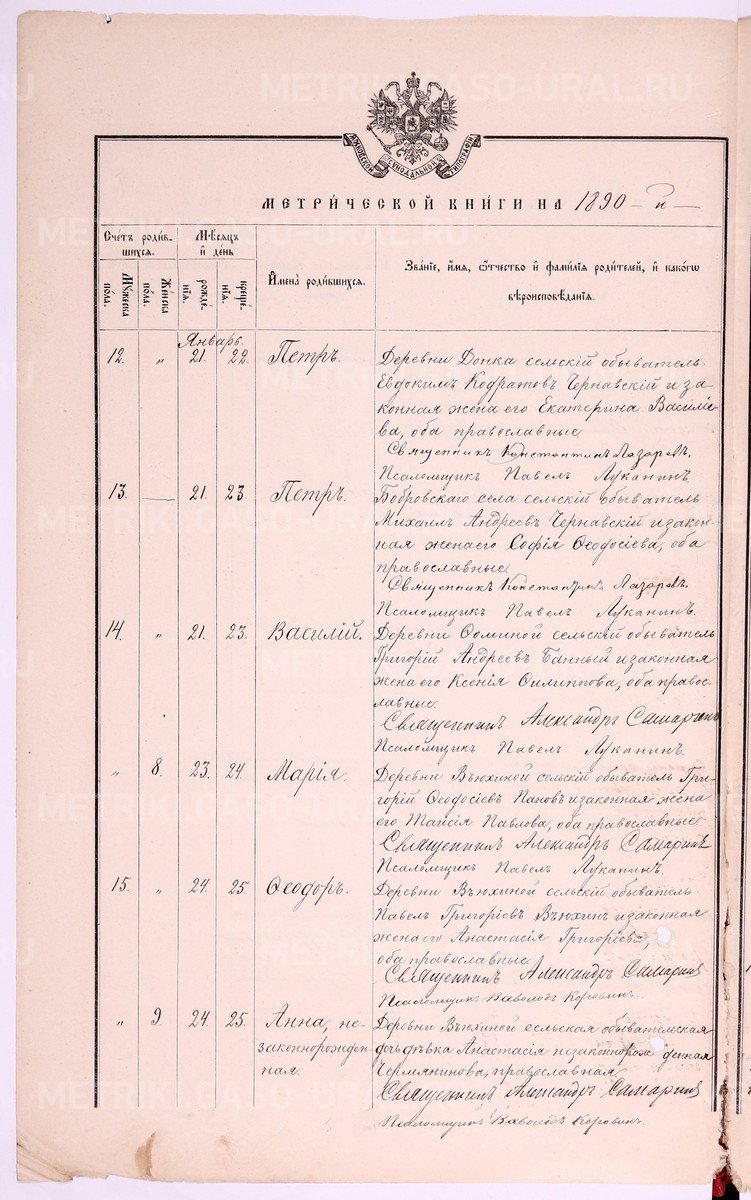 METRIK.GASO-URAL.RU
МОСКОВСКОЙ СѴНОДАЛЬНОЙ ТИПОГРАФІИ
МЕТРИ́ЧЕСКОЙ КНИ́ГИ НА 1890 – й –
Сче́тъ роди́в-
шихся.
Мѣ́сяцъ
и҆ де́нь
И҆мена̀ роди́вшихся.
Зва́нїе, и҆́мя, ѻ҆́тчество и҆ фами́лїя роди́телей, и҆ како́гѡ
вѣроисповѣ́данїя.
Мꙋ́жеска по́ла.
Же́нска по́ла.
рожде́нїѧ.
креще́нїѧ.
Январь.
12. „ 21. 22. Петръ. Деревни Донка сельскій обыватель
Евдокимъ Кодратовъ Чернавскій и за-
конная жена его Екатерина Василіе-
ва, оба православные
Священникъ Константинъ Лазаревъ.
Псаломщикъ Павелъ Луканинъ.
13. — 21. 23. Петръ. Бобровскаго села сельскій обыватель
Михаилъ Андреевъ Чернавскій и закон-
ная жена его Софія Ѳеодосіева, оба
православные.
Священникъ Константинъ Лазаревъ.
Псаломщикъ Павелъ Луканинъ.
14. „ 21. 23. Василій. Деревни Ѳоминой сельскій обыватель
Григорій Андреевъ Банный и законная
жена его Ксенія Филиппова, оба правос-
лавные.
Священникъ Александръ Самаринъ
Псаломщикъ Павелъ Луканинъ.
„ 8. 23. 24. Марія. Деревни Вьюхиной сельскій обыватель Гри-
горій Ѳеодосіевъ Пановъ и законная жена
его Таисія Павлова, оба православные
Священникъ Александръ Самаринъ
Псаломщикъ Павелъ Луканинъ.
15. „ 24. 25. Ѳеодоръ. Деревни Вьюхиной сельскій обыватель
Павелъ Григоріевъ Вьюхинъ и законная
жена его Анастасія Григоріева,
оба православные
Священникъ Александръ Самаринъ
Псаломщикъ Всеволодъ Коровинъ.
„ 9. 24. 25. Анна, не- Деревни Вьюхиной сельская обывательская
законнорожден- дочь дѣвка Анастасія незаконнорожденная
ная. православная
Священникъ Александръ Самаринъ
Псаломщикъ Всеволодъ Коровинъ.